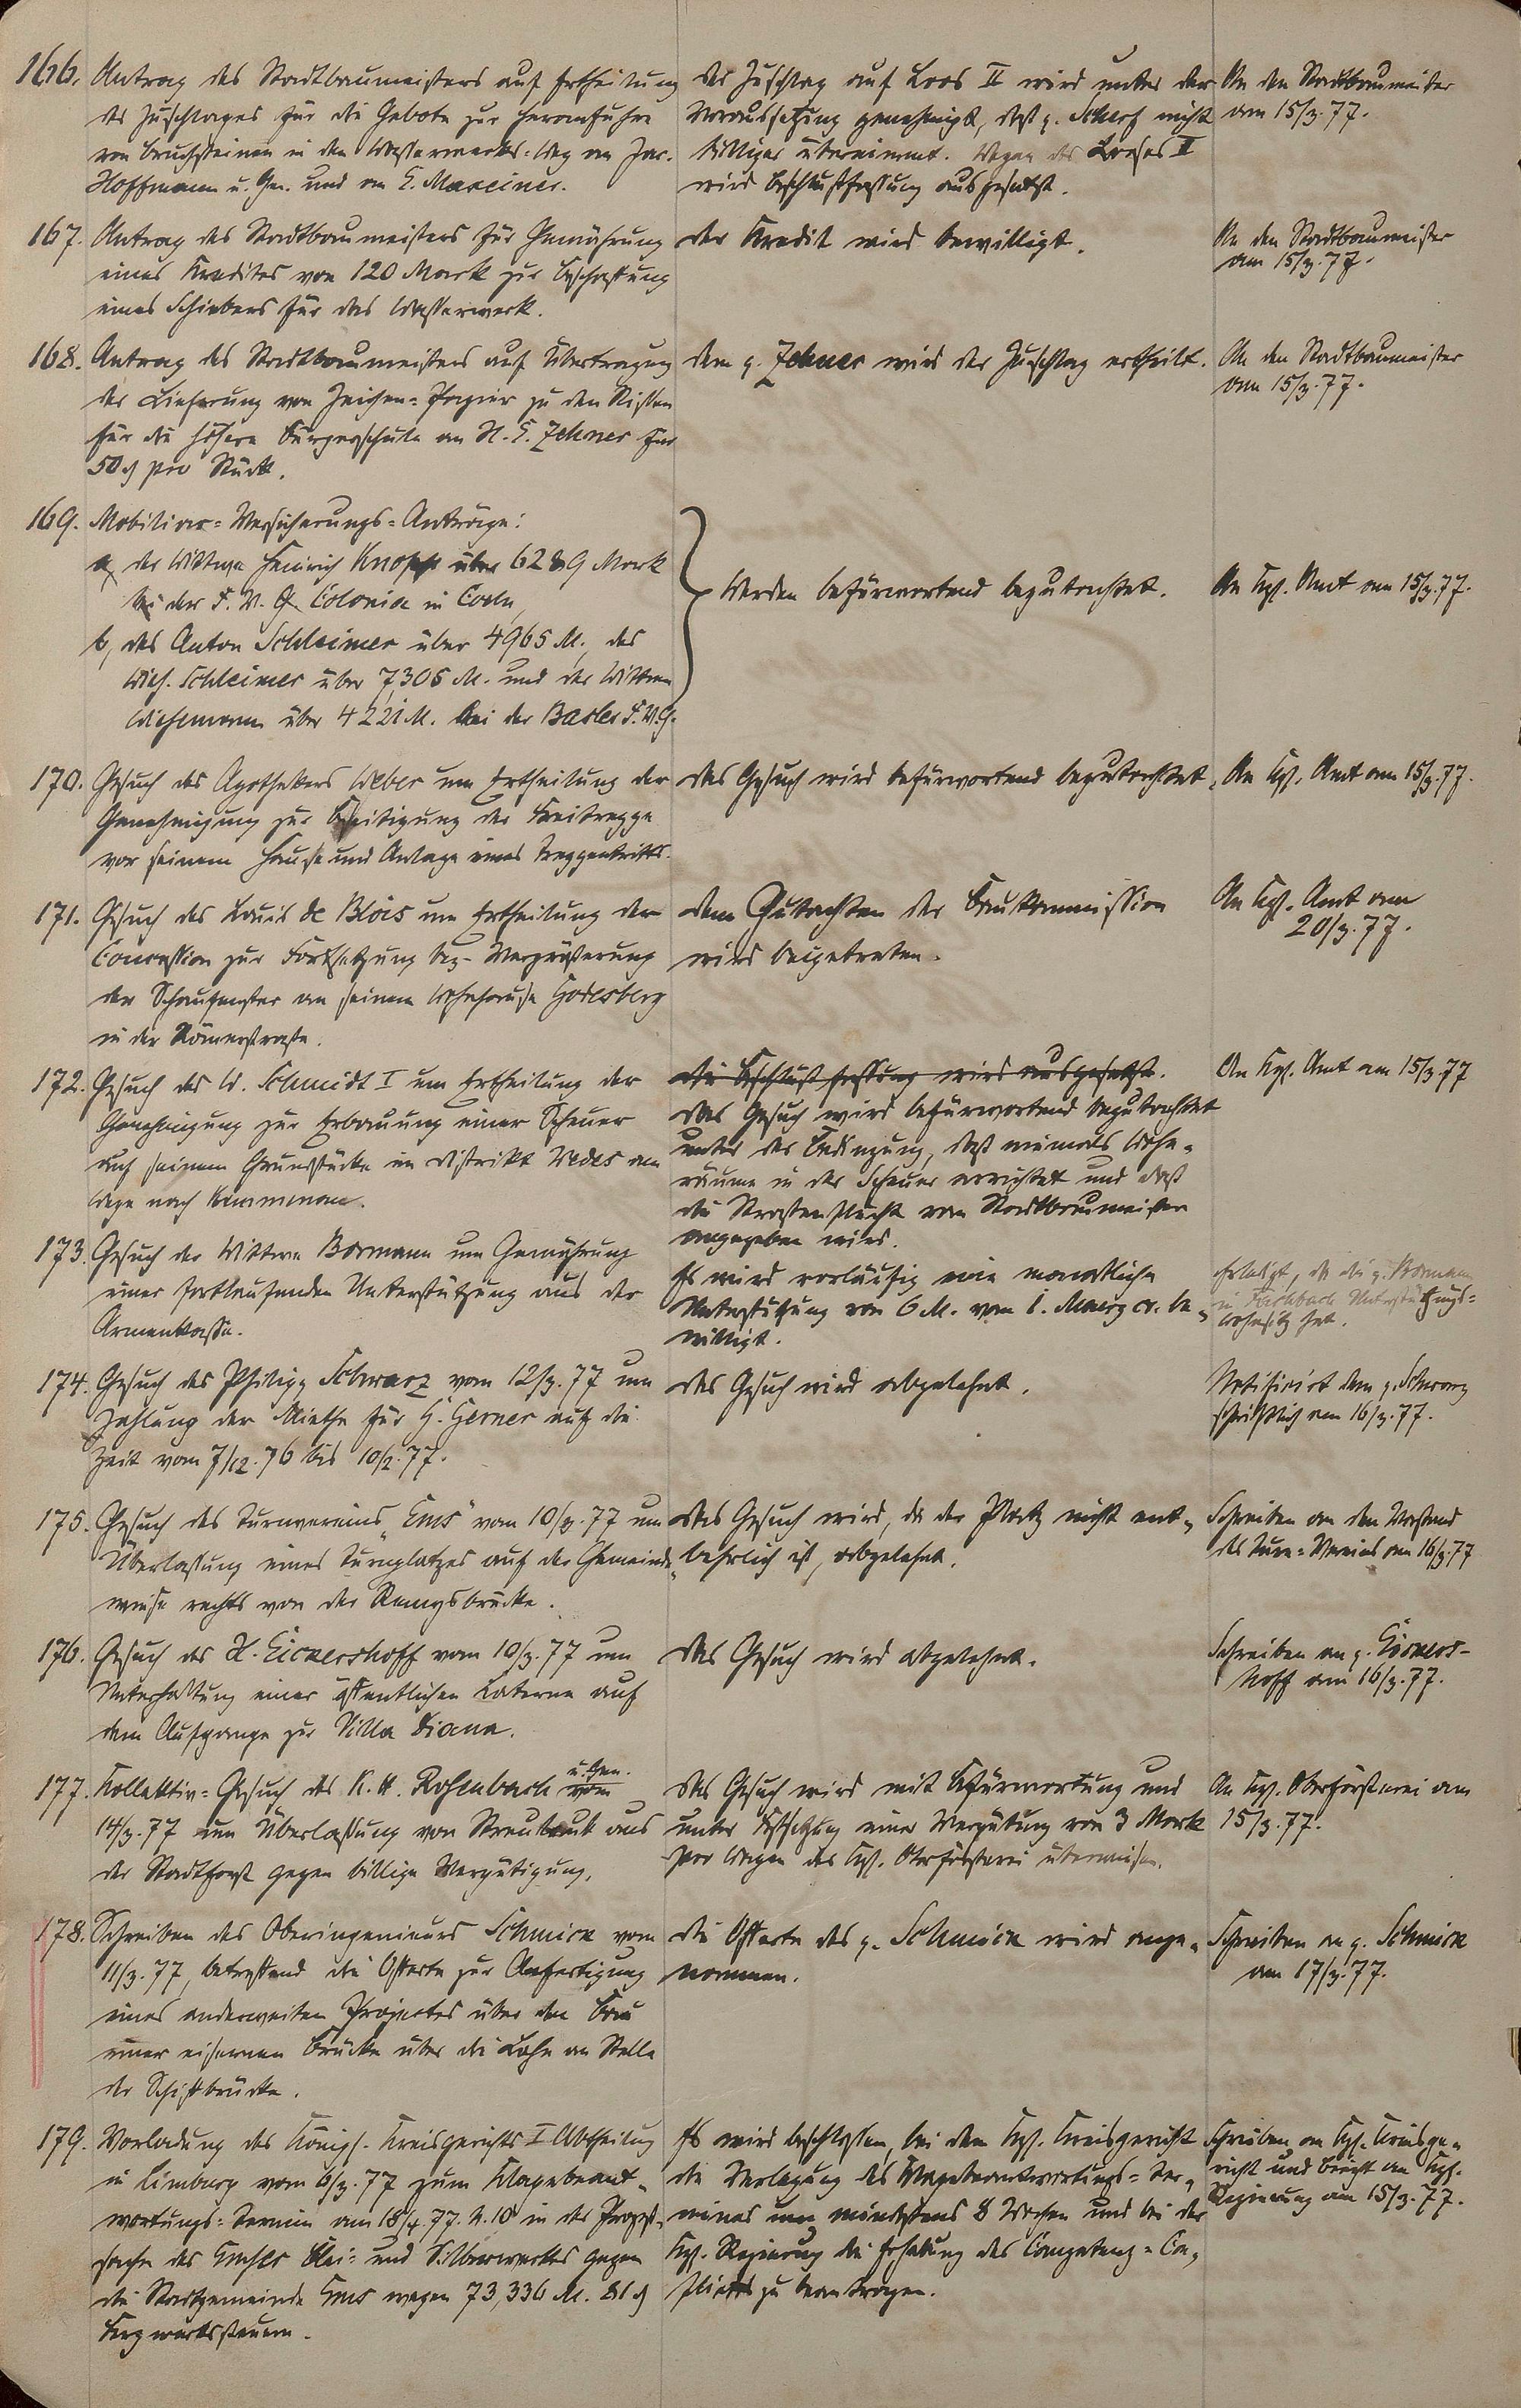 166. Antrag des Stadtbaumeisters auf Ertheilung
des Zuschlages für die Gebote zur Heranfuhre
von Bruchsteinen in den Wasserwerks-Weg an Jac.
Hoffmann u. Gen. und an E. Marciner.
Der Zuschlag auf Loos II wird unter der
Voraussetzung genehmigt, daß p. Scherf nicht
billiger übernimmt. Wegen des Looses I
wird Beschlußfassung ausgesetzt.
An den Stadtbaumeister
am 15/3.77.
167. Antrag des Stadtbaumeisters für Gewährung
eines Kredites von 120 Mark zur Beschaffung
eines Schiebers für das Wasserwerk.
Der Kredit wird bewilligt.
An den Stadtbaumeister
am 15/3.77.
168. Antrag des Stadtbaumeisters auf Übertragung
der Lieferung von Zeichen-Papier zu den Rissen
für die höhere Bürgerschule an H. E. Zehner für
50 ₰ pro Stück.
Dem p. Zehner wird der Zuschlag ertheilt.
An den Stadtbaumeister
am 15/3.77.
169. Mobiliar-Versicherungs-Anträge:
a, der Wittwe Heinrich Knopp über 6289 Mark
bei der F. V. G. Colonia in Coeln,
b, des Anton Schleimer über 4965 M., des
Wilh. Schleimer über 7,306 M. und der Wittwe
Wiesmann über 4221 M. bei der Basler F.V.G.
Werden befürwortend begutachtet.
An Kgl. Amt am 15/3.77.
170. Gesuch des Apothekers Weber um Ertheilung der
Genehmigung zur Beseitigung der Freitreppe
vor seinem Hause und Anlage eines Treppentritts.
Das Gesuch wird befürwortend begutachtet.
An Kgl. Amt am 15/3.77.
171. Gesuch des Louis de Blois um Ertheilung der
Concession zur Fortsetzung bez. Vergrößerung
der Schaufenster an seinem Wohnhause Godesberg
in der Römerstraße.
Dem Gutachten der Baukommission
wird beigetreten.
An Kgl. Amt am
20/3.77.
172. Gesuch des W. Schmidt I um Ertheilung der
Genehmigung zur Erbauung einer Scheuer
auf seinem Grundstücke im Distrikt Wedes am
Wege nach Kemmenau.
Die Beschlußfassung wird ausgesetzt.
Das Gesuch wird befürwortend begutachtet
unter der Bedingung, daß niemals Wohn-
räume in der Scheuer errichtet und daß
die Straßenflucht vom Stadtbaumeister
angegeben wird.
An Kgl. Amt am 15/3.77
173. Gesuch der Wittwe Bormann um Gewährung
einer fortlaufenden Unterstützung aus der
Armenkasse.
Es wird vorläufig eine monatliche
Unterstützung von 6 M. vom 1. Maerz cr. be-
willigt.
Erledigt, da die p. Bormann
in Fachbach Unterstützungs-
wohnsitz hat.
174. Gesuch des Philipp Schwarz vom 12/3.77 um
Zahlung der Miethe für H. Gerner auf die
Zeit vom 7/12.76 bis 10/2.77.
Das Gesuch wird abgelehnt.
Notificirt dem p. Schwarz
schriftlich am 16/3.77.
175. Gesuch des Turnvereins "Ems" vom 10/3.77 um
Überlassung eines Turnplatzes auf der Gemeinde-
wiese rechts von der Remysbrücke.
Das Gesuch wird, da der Platz nicht ent-
behrlich ist, abgelehnt.
Schreiben an den Vorstand
des Turn-Vereins am 16/3.77
176. Gesuch des H. Eickershoff vom 10/3.77 um
Unterhaltung einer öffentlichen Laterne auf
dem Aufgange zur Villa Diana.
Das Gesuch wird abgelehnt.
Schreiben an p. Eickers-
hoff am 16/3.77.
177. Kollektiv-Gesuch des K. H. Rosenbach u. Gen. vom
14/3.77 um Überlassung von Streulaub aus
der Stadtforst gegen billige Vergütigung.
Das Gesuch wird mit Befürwortung und
unter Festsetzung einer Vergütung von 3 Mark
per Wagen der Kgl. Oberförsterei überwiesen.
An Kgl. Oberförsterei am
15/3.77.
178. Schreiben des Oberingenieurs Schmick vom
11/3.77, betreffend die Offerte zur Anfertigung
eines anderweiten Projectes über den Bau
einer eisernen Brücke über die Lahn an Stelle
der Schiffbrücke.
Die Offerte des p. Schmick wird ange-
nommen.
Schreiben an p. Schmick
am 17/3.77.
179. Vorladung des Königl. Kreisgerichts I Abtheilung
in Limburg vom 6/3.77 zum Klagebeant-
wortungs-Termin am 18/4.77. V. 10 in der Prozeß-
sache des Emser Blei- und Silberwerkes gegen
die Stadtgemeinde Ems wegen 73,336 M. 81 ₰
Bergwerkssteuern.
Es wird beschlossen, bei dem Kgl. Kreisgericht
die Verlegung des Klagebeantwortungs-Ter-
mines um mindestens 8 Wochen und bei der
Kgl. Regierung die Erhebung des Competenz-Con-
flictes zu beantragen.
Schreiben an Kgl. Kreisge-
richt und Bericht an Kgl.
Regierung am 15/3.77.